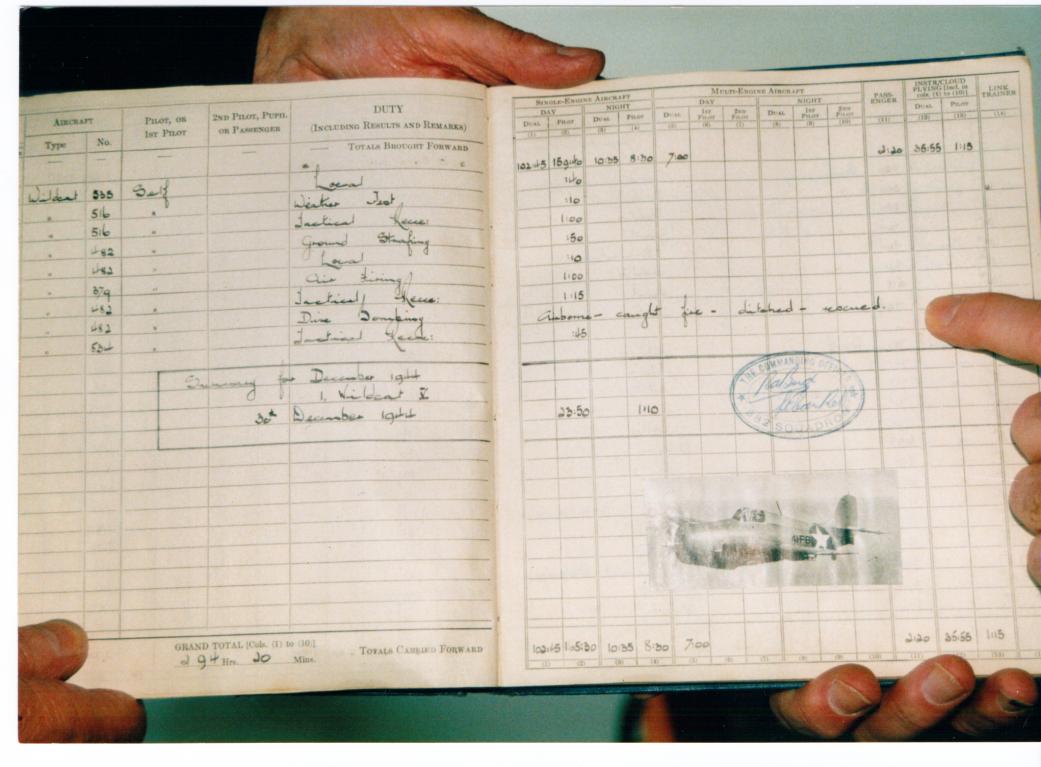 AIRCRAFT
PILOT, OR 1ST PILOT
2ND PILOT, PUPIL OR PASSENGER
DUTY
(INCLUDING RESULTS AND REMARKS)
Type No.
— — — — TOTALS BROUGHT FORWARD
Wildcat 535 Self Local
" 516 " Weather Test
" 516 " Tactical Recce:
" 482 " Ground Strafing
" 482 " Local
" 379 " Air Firing
" 482 " Tactical Recce:
" 482 " Dive Bombing
" 534 " Tactical Recce:
Summary for December 1944
1. Wildcat V
30th December 1944
GRAND TOTAL [Cols. (1) to (10)]
294 Hrs. 20 Mins.
TOTALS CARRIED FORWARD
SINGLE-ENGINE AIRCRAFT
MULTI-ENGINE AIRCRAFT
PASS-ENGER
INSTR/CLOUD FLYING [Incl. in cols. (1) to (10)]
LINK TRAINER
DAY NIGHT DAY NIGHT
DUAL PILOT DUAL PILOT DUAL 1ST PILOT 2ND PILOT DUAL 1ST PILOT 2ND PILOT DUAL PILOT
(1) (2) (3) (4) (5) (6) (7) (8) (9) (10) (11) (12) (13) (14)
102:45 10:35 8:30 7:00 2:20 35:55 1:15
:40
:10
1:00
:50
:10
1:00
1:15
Airborne - caught fire - ditched - rescued.
:45
THE COMMANDING OFFICER
882 SQUADRON
23:50 1:10
102:45 10:35 8:30 7:00 2:20 35:55 1:15
(1) (2) (3) (4) (5) (6) (7) (8) (9) (10) (11) (12) (13)